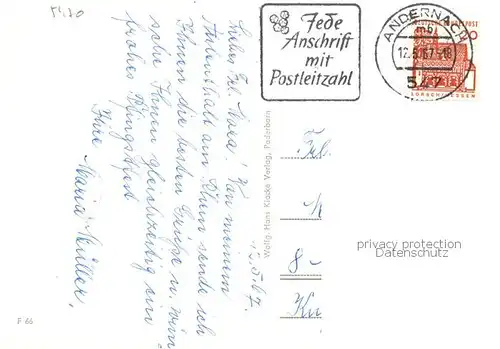 54.20
Jede
Anschrift
mit
Postleitzahl
ANDERNACH
mb
12.5.67-18
547
DEUTSCHE BUNDESPOST
LORSCH/HESSEN
12.5.67.
Liebes Frl. Kara! Von meinem
Aufenthalt am Rhein sende ich
Ihnen die besten Grüße u. wün
sche Ihnen gleichzeitig ein
frohes Pfingstfest
Ihre Maria Müller.
Wolfg. Hans Klocke Verlag, Paderborn
Frl.
8-
privacy protection
Datenschutz
F 66